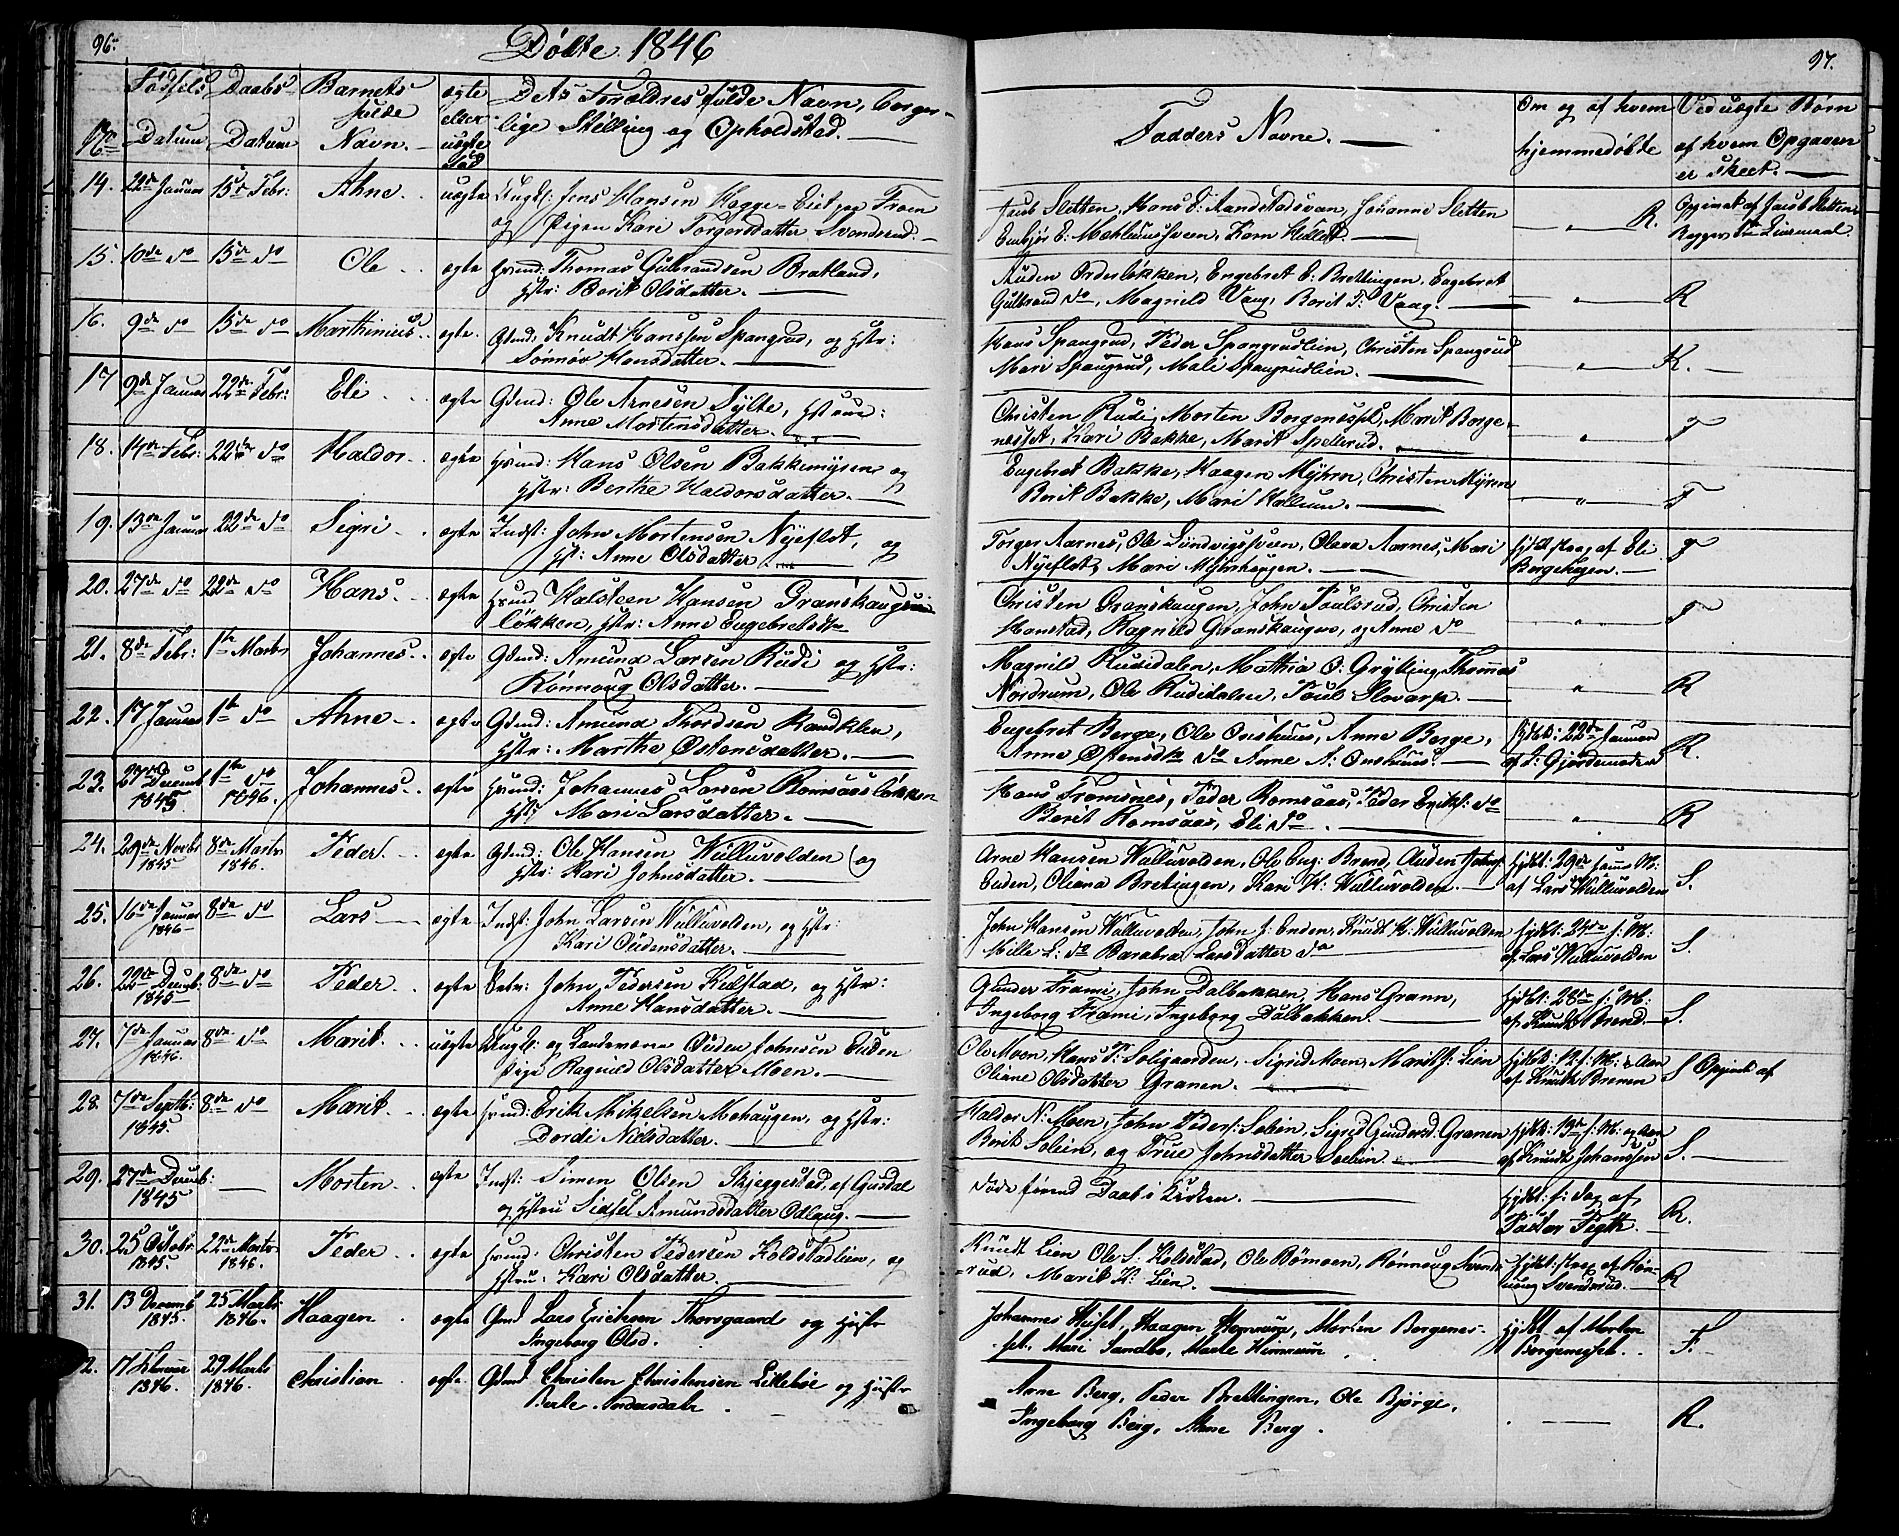 96.
Döbte 1846
No
Födsels Datum
Daabs Datum
Barnets fulde Navn.
ægte eller uægte Fød
Dets Forældres fulde Navn, borger-
lige Stilling og Opholdsted.
14. 22de Januar 15de Febr: Ahne uægte Ungk: Jens Hansen Hagge-Eiet paa Froen
og Pigen Kari Torgersdatter Svendsrud.
15. 10de do 15de do Ole ægte Hmd: Thomas Gulbrandsen Bratland,
Hstr: Berit Olsdatter.
16. 9de do 15de do Marthinius ægte Gdmd: Knudt Hanssen Spangrud, og Hstr:
Sönnöv Hansdatter.
17 9de Januar 22de Febr: Eli ægte Gdmd: Ole Arnesen Sylte, Hstrue:
Anne Mortensdatter.
18. 14de Febr: 22de do Haldor ægte Hmd: Hans Olsen Bakkemyren og
Hstr: Berthe Haldorsdatter.
19. 13de Januar 22de do Sigri ægte Indst: John Mortensen Nyeflot, og
Hst: Anne Olsdatter
20. 27de do 22de do Hans ægte Hmd Halsteen Hansen Granskaugen
lökken, Hstr: Anne Engebretsdtr
21. 8de Febr: 1ste Marts Johannes ægte Gdmd: Amund Larsen Rudi og Hstr:
Rönnoug Olsdatter.
22. 17 Januar 1ste do Ahne ægte Gdmd: Amund Thordsen Randklev,
Hstr: Marthe Östensdatter.
23. 27de Decemb 1845. 1ste do 1846. Johannes ægte Hmd: Johannes Larsen Romsaaslökken
Hst: Mari Larsdatter.
24. 29de Novbr 1845 8de Marts 1846. Peder ægte Gdmd: Ole Hansen Wulluvolden og
Hstr: Kari Johnsdatter.
25. 16de Januar 1846 8de do Lars ægte Indst: John Larsen Wulluvolden, og Hstr:
Kari Oudensdatter.
26. 22de Decemb: 1845 8de do Peder ægte John Pedersen Kulstad, og Hstr:
Anne Hansdatter.
27. 7de Januar 1846. 8de do Marit uægte Ungk: og Landeværn Ouden Johnsen Enden
Pige Ragnild Olsdatter Moen.
28. 7de Septb: 1845. 8de do Marit ægte Hmd: Erik Mikelsen Mohaugen, og Hstr:
Dordi Nielsdatter.
29. 27de Decemb: 1845 Morten ægte Indst: Simen Olsen Skjeggestad, af Gusdal
og Hstru Sidsel Amundsdatter Odlaug.
30. 25 Octobr 1845. 22de Marts 1846. Peder ægte Hmd: Christen Pedersen Koldstadlien, og
Hstru: Kari Olsdatter.
31. 13 Decemb 1845. 25 Marts 1846. Haagen ægte Gmd Lars Erichsen Thorsgaard og Hustr
Ingeborg Olsd.
2. 17 Februar 1846. 29 Marts 1846. Christian ægte Gdmd Christen Christensen Lilleböe og Hustr
Berte Andersdatr
97.
Fadders Navne.
Om og af hvem
hjemmedöbte
Ved uægte Börn
af hvem Opgaven
er skeet.
Jacob Sletten, Hans E: Sandstadsvan, Johanne Sletten
Embjör E: Mehlumssveen, Karn Hillet
R. Opgivet af Jacob Sletten
Audon Ordsløkken, Engebret E: Brettingen, Engebret
Gulbrand do, Magnild Vaag, Berit T: Vaag. R
Hans Spangrud, Peder Spangrudlien, Christen Spangrud
Mari Spangrud, Mali Spangrudlien. K.
Christen Rudi, Morten Borgenesset, Marit Borge-
nesset, Kari Bakke, Marit Spelerud. F
Engebret Bakke, Haagen Myhren, Christen Myren
Berit Bakke, Mari Kollum. F
Torger Aarnes, Ole Lundvigssveen, Olava Aarnes, Mari
Nyeflot, Mari Myhrhaugen.
Hjdbt strax af Eli
Borgehagen. F
Christen Granskaugen, John Poulsrud, Christen
Hanstad, Ragnild Granskaugen, og Anne do F
Magnild Rusidalen, Mathia O: Grytting, Thomas
Nordrum, Ole Rudidalen, Poul Slovarp. R
Engebret Berge, Ole Onshuus, Anne Berge,
Anne Östensdtr do Anne A: Onshuus.
Hjdbt: 22de Januar
af A: Gjördemoderen R.
Hans Tromsnes, Peder Romsaas, Peder Eriks: do
Berit Romsaas, Eli do R
Arne Hansen Wulluvolden, Ole Eng: Brend, Auden Johns:
Enden, Oliana Bretingen, Kari H: Wulluvolden.
Hjdbt: 29de samme M:
af Lars Wulluvolden S.
John Hansen Wulluvolden, John J: Enden, Knudt H: Wulluvolden
Mille L: do Barabra Larsdatter do
Hjdbt: 24de s: M:
af Lars Wulluvolden S.
Gunder Frami, John Dalbakken, Hans Grann,
Ingeborg Frami, Ingeborg Dalbakken.
Hjdbt: 28de s: M:
af Knudt Brend. S.
Ole Moen, Hans P: Soligaarden, Sigrid Moen, Marit J: Lien
Oliane Olsdatter Granen.
af Knudt Brenen S Opgivet af
Haldor N: Moen, John Peders: Solien, Sigrid Gundersd: Granen
Berit Solien, og True Johnsdatter Solien
Hjdbt: 19de s: M: og Aar
af Knudt Johanssen S.
Döde förend Daab i Kirken.
Hjdbt: s: Dag af
Pastor Pigth. R.
Knudt Lien Ole S: Kolstad, Ole Bömoen, Rönnoug Svends-
rud, Marit K: Lien.
Hjdbt: strax af Rön-
noug Svendsrud. R
Johannes Huset, Haagen Hemrum, Morten Borgenes-
set, Mari Sandbo, Marte Himrum
Hjdbt af Morten
Borgenesset. F.
Arne Berg, Peder Brettingen, Ole Bjørge,
Ingeborg Berg, Anne Berg. R.